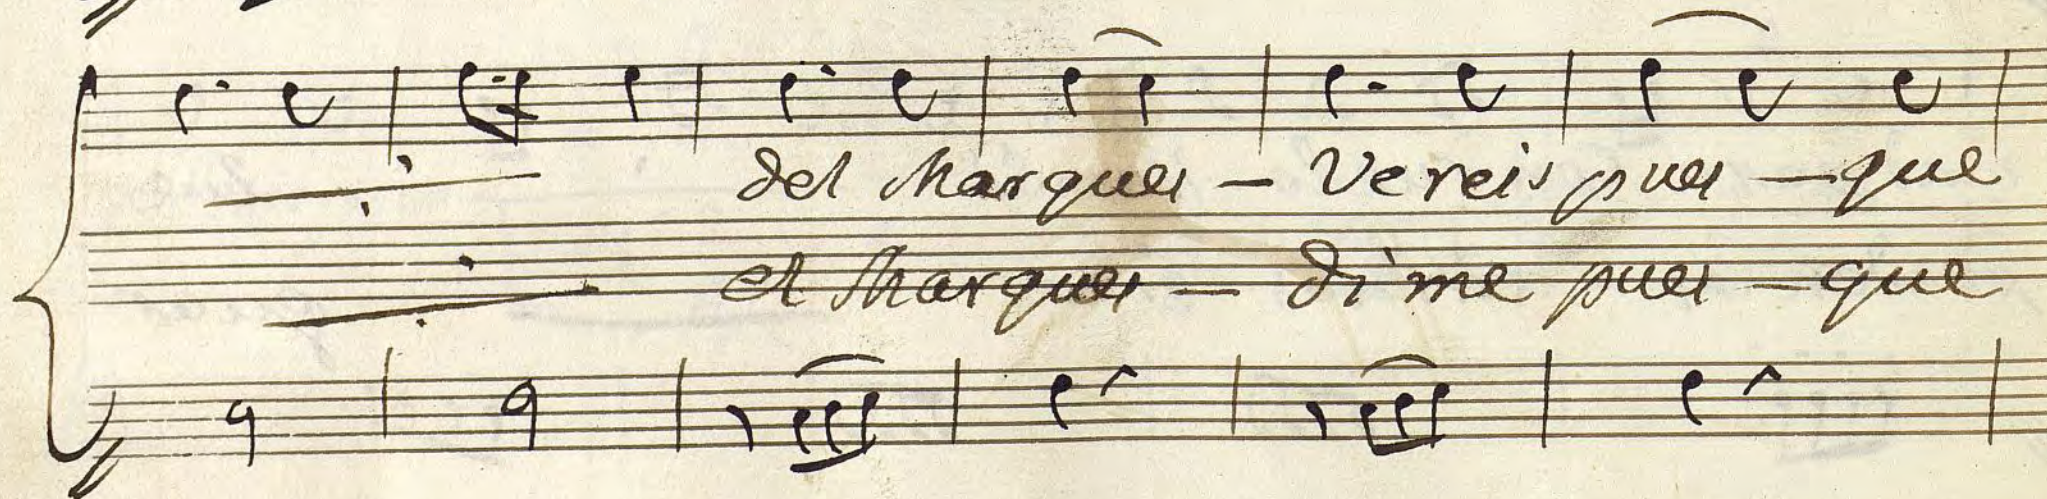 del Marques – Vereis pues – que
el Marques – dime pues – que